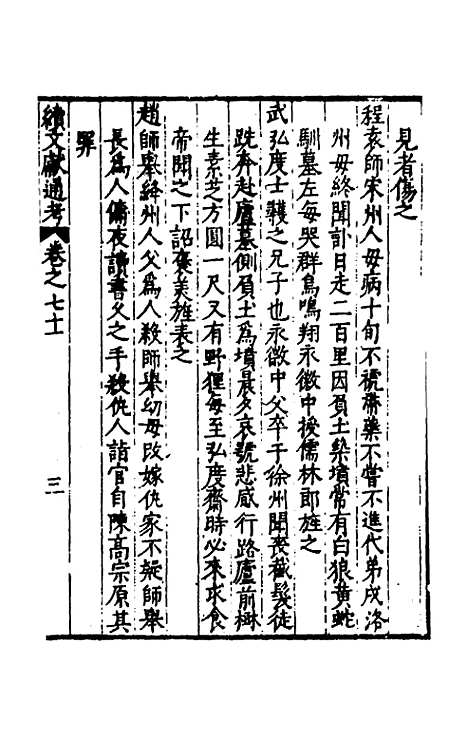 見者傷之
程袁師宋州人母病十旬不褫帶藥不嘗不進代弟戍洛
州母終聞訃日走二百里因負土築墳常有白狼黃蛇
馴墓左每哭群鳥鳴翔永徽中授儒林郎旌之
武弘度士彠之兄子也永徽中父卒于徐州聞喪截髮徒
跣奔赴廬墓側負土爲墳晨夕哀號悲感行路廬前樹
生素芝方圓一尺又有野狸每至弘度齋時必來求食
帝聞之下詔褒美旌表之
趙師舉絳州人父爲人殺師舉幼母改嫁仇家不疑師舉
長爲人傭夜讀書久之手殺仇人詣官自陳高宗原其
罪
續文獻通考 卷之七十 三